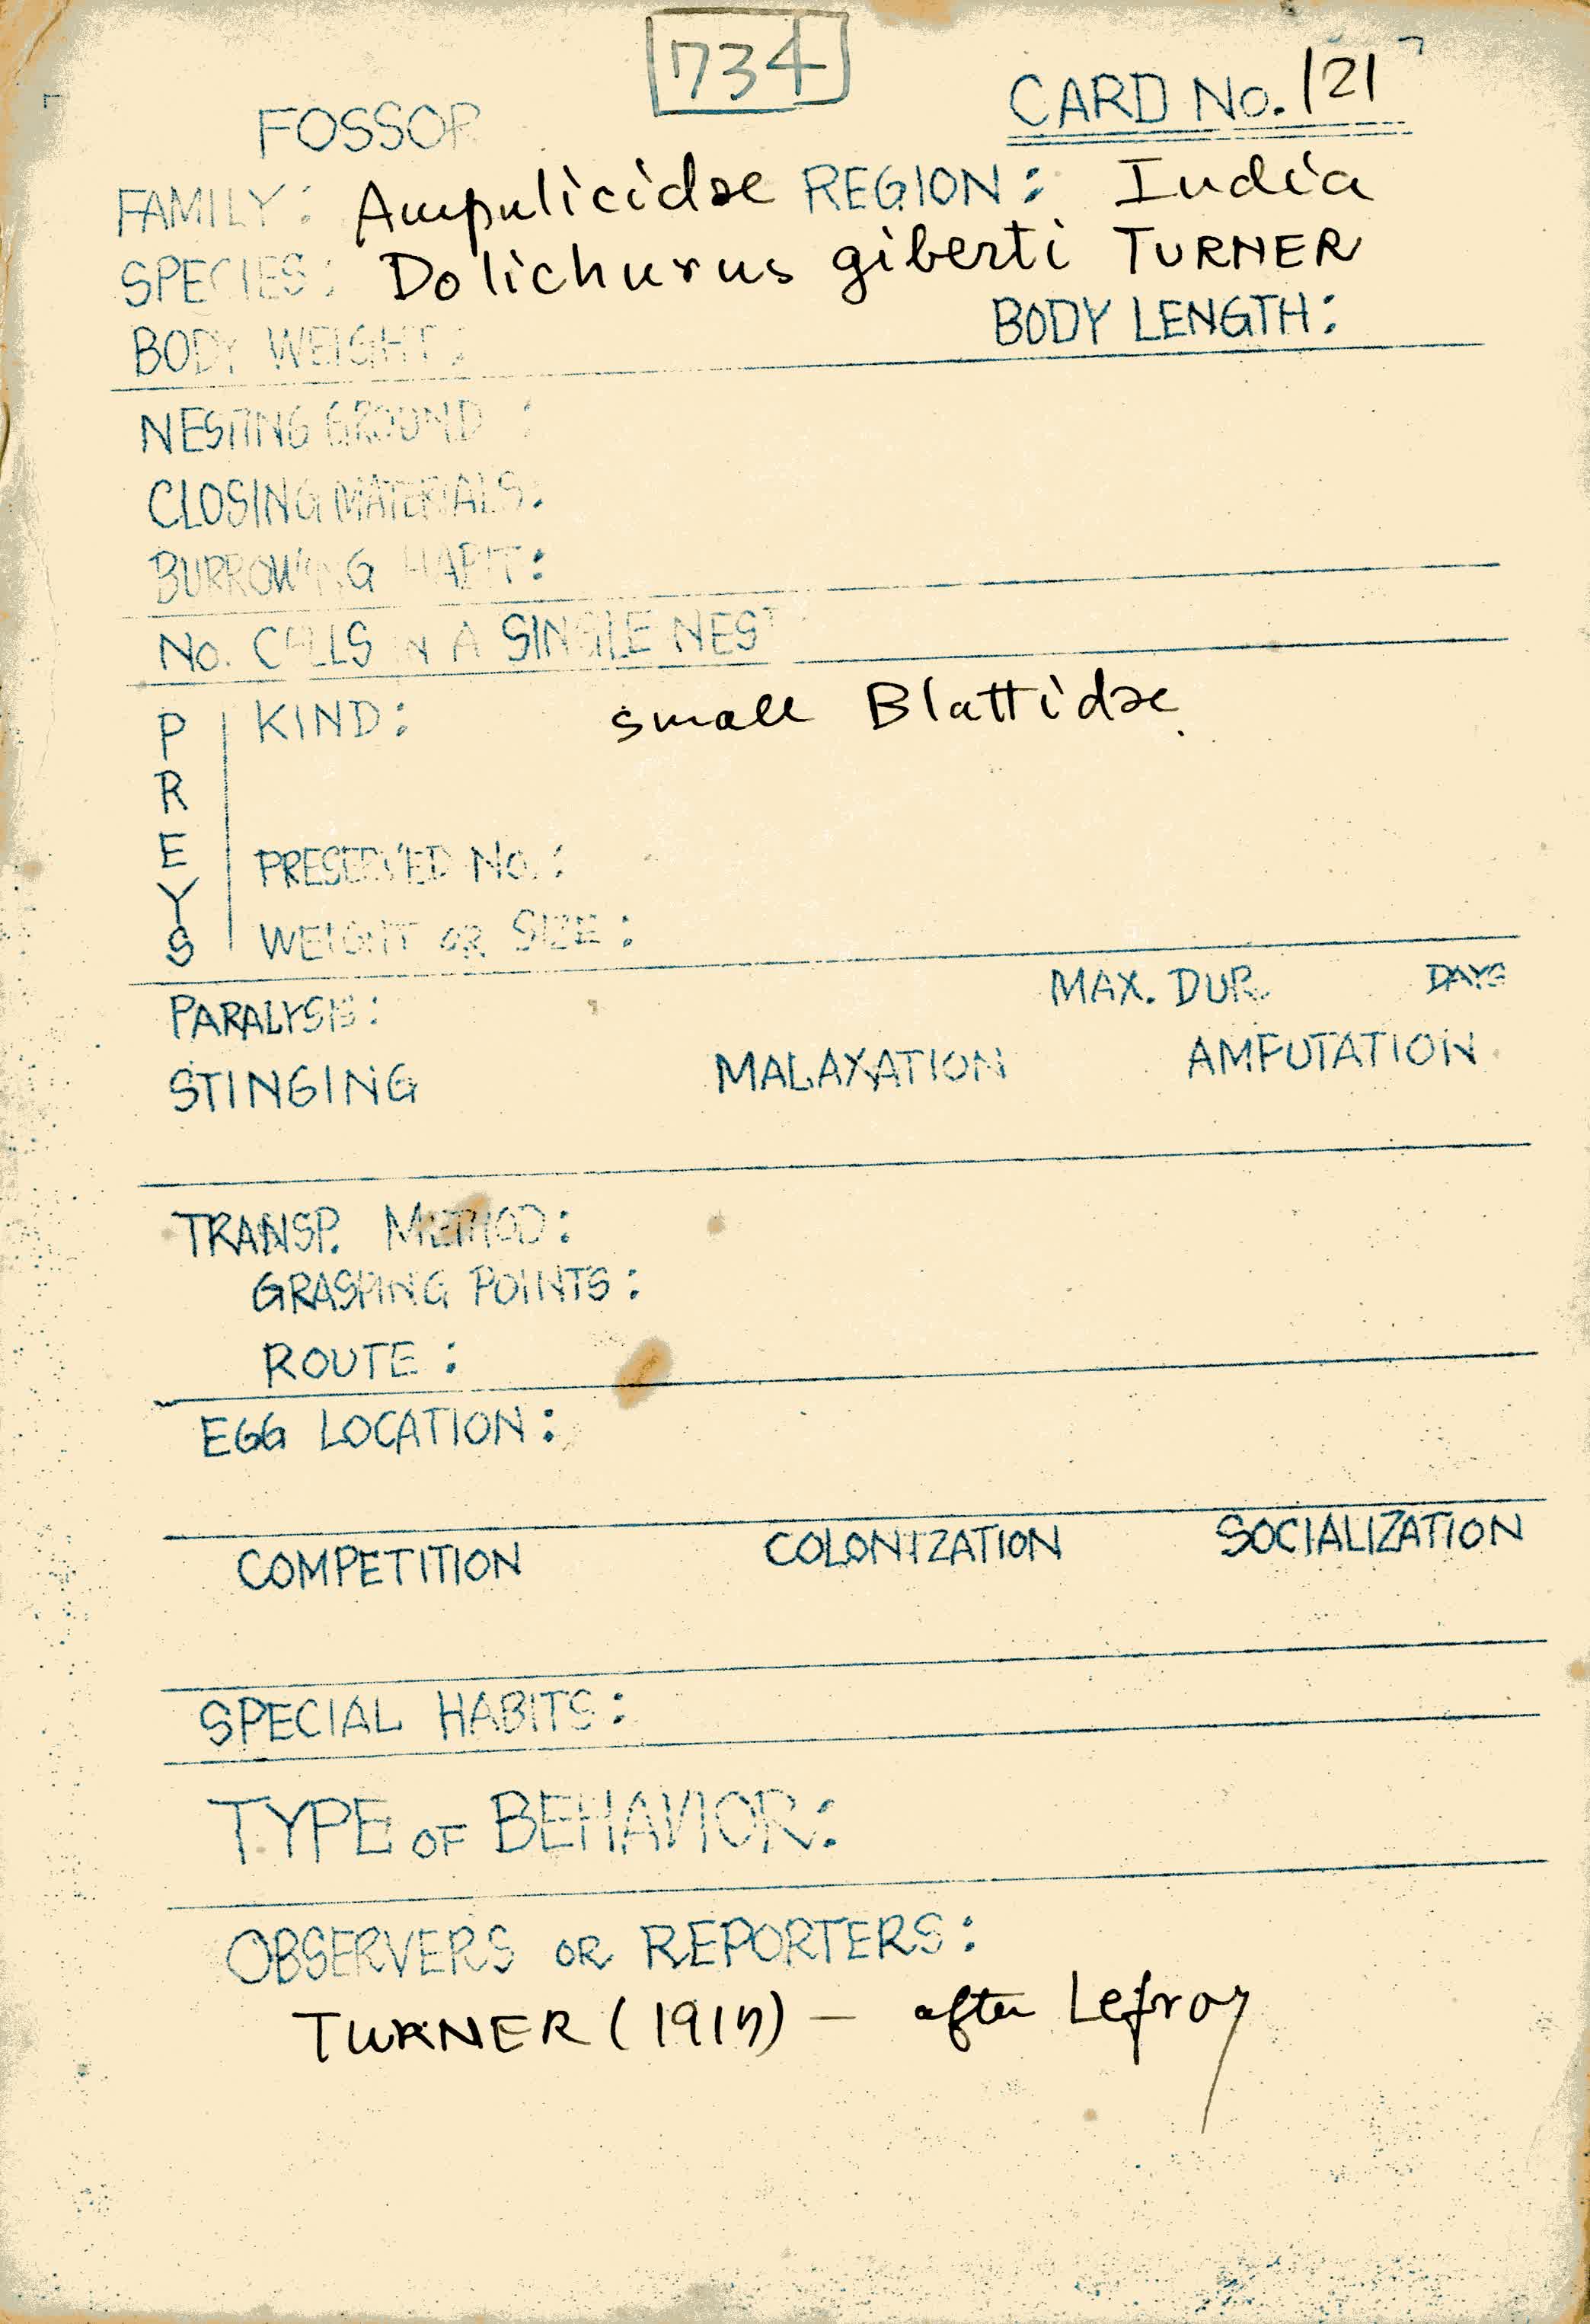 734
FOSSOR CARD No. 121
FAMILY: Ampulicidae REGION: India
SPECIES: Dolichurus giberti TURNER
BODY WEIGHT: BODY LENGTH:
NESTING GROUND :
CLOSING MATERIALS:
BURROWING HABIT:
No. CELLS IN A SINGLE NEST
PREYS
KIND: small Blattidae.
PRESERVED No.:
WEIGHT OR SIZE:
MAX. DUR. DAYS
PARALYSIS:
STINGING MALAXATION AMPUTATION
TRANSP. METHOD:
GRASPING POINTS:
ROUTE :
EGG LOCATION:
COMPETITION COLONIZATION SOCIALIZATION
SPECIAL HABITS:
TYPE OF BEHAVIOR:
OBSERVERS OR REPORTERS:
TURNER (1917) — after Lefroy